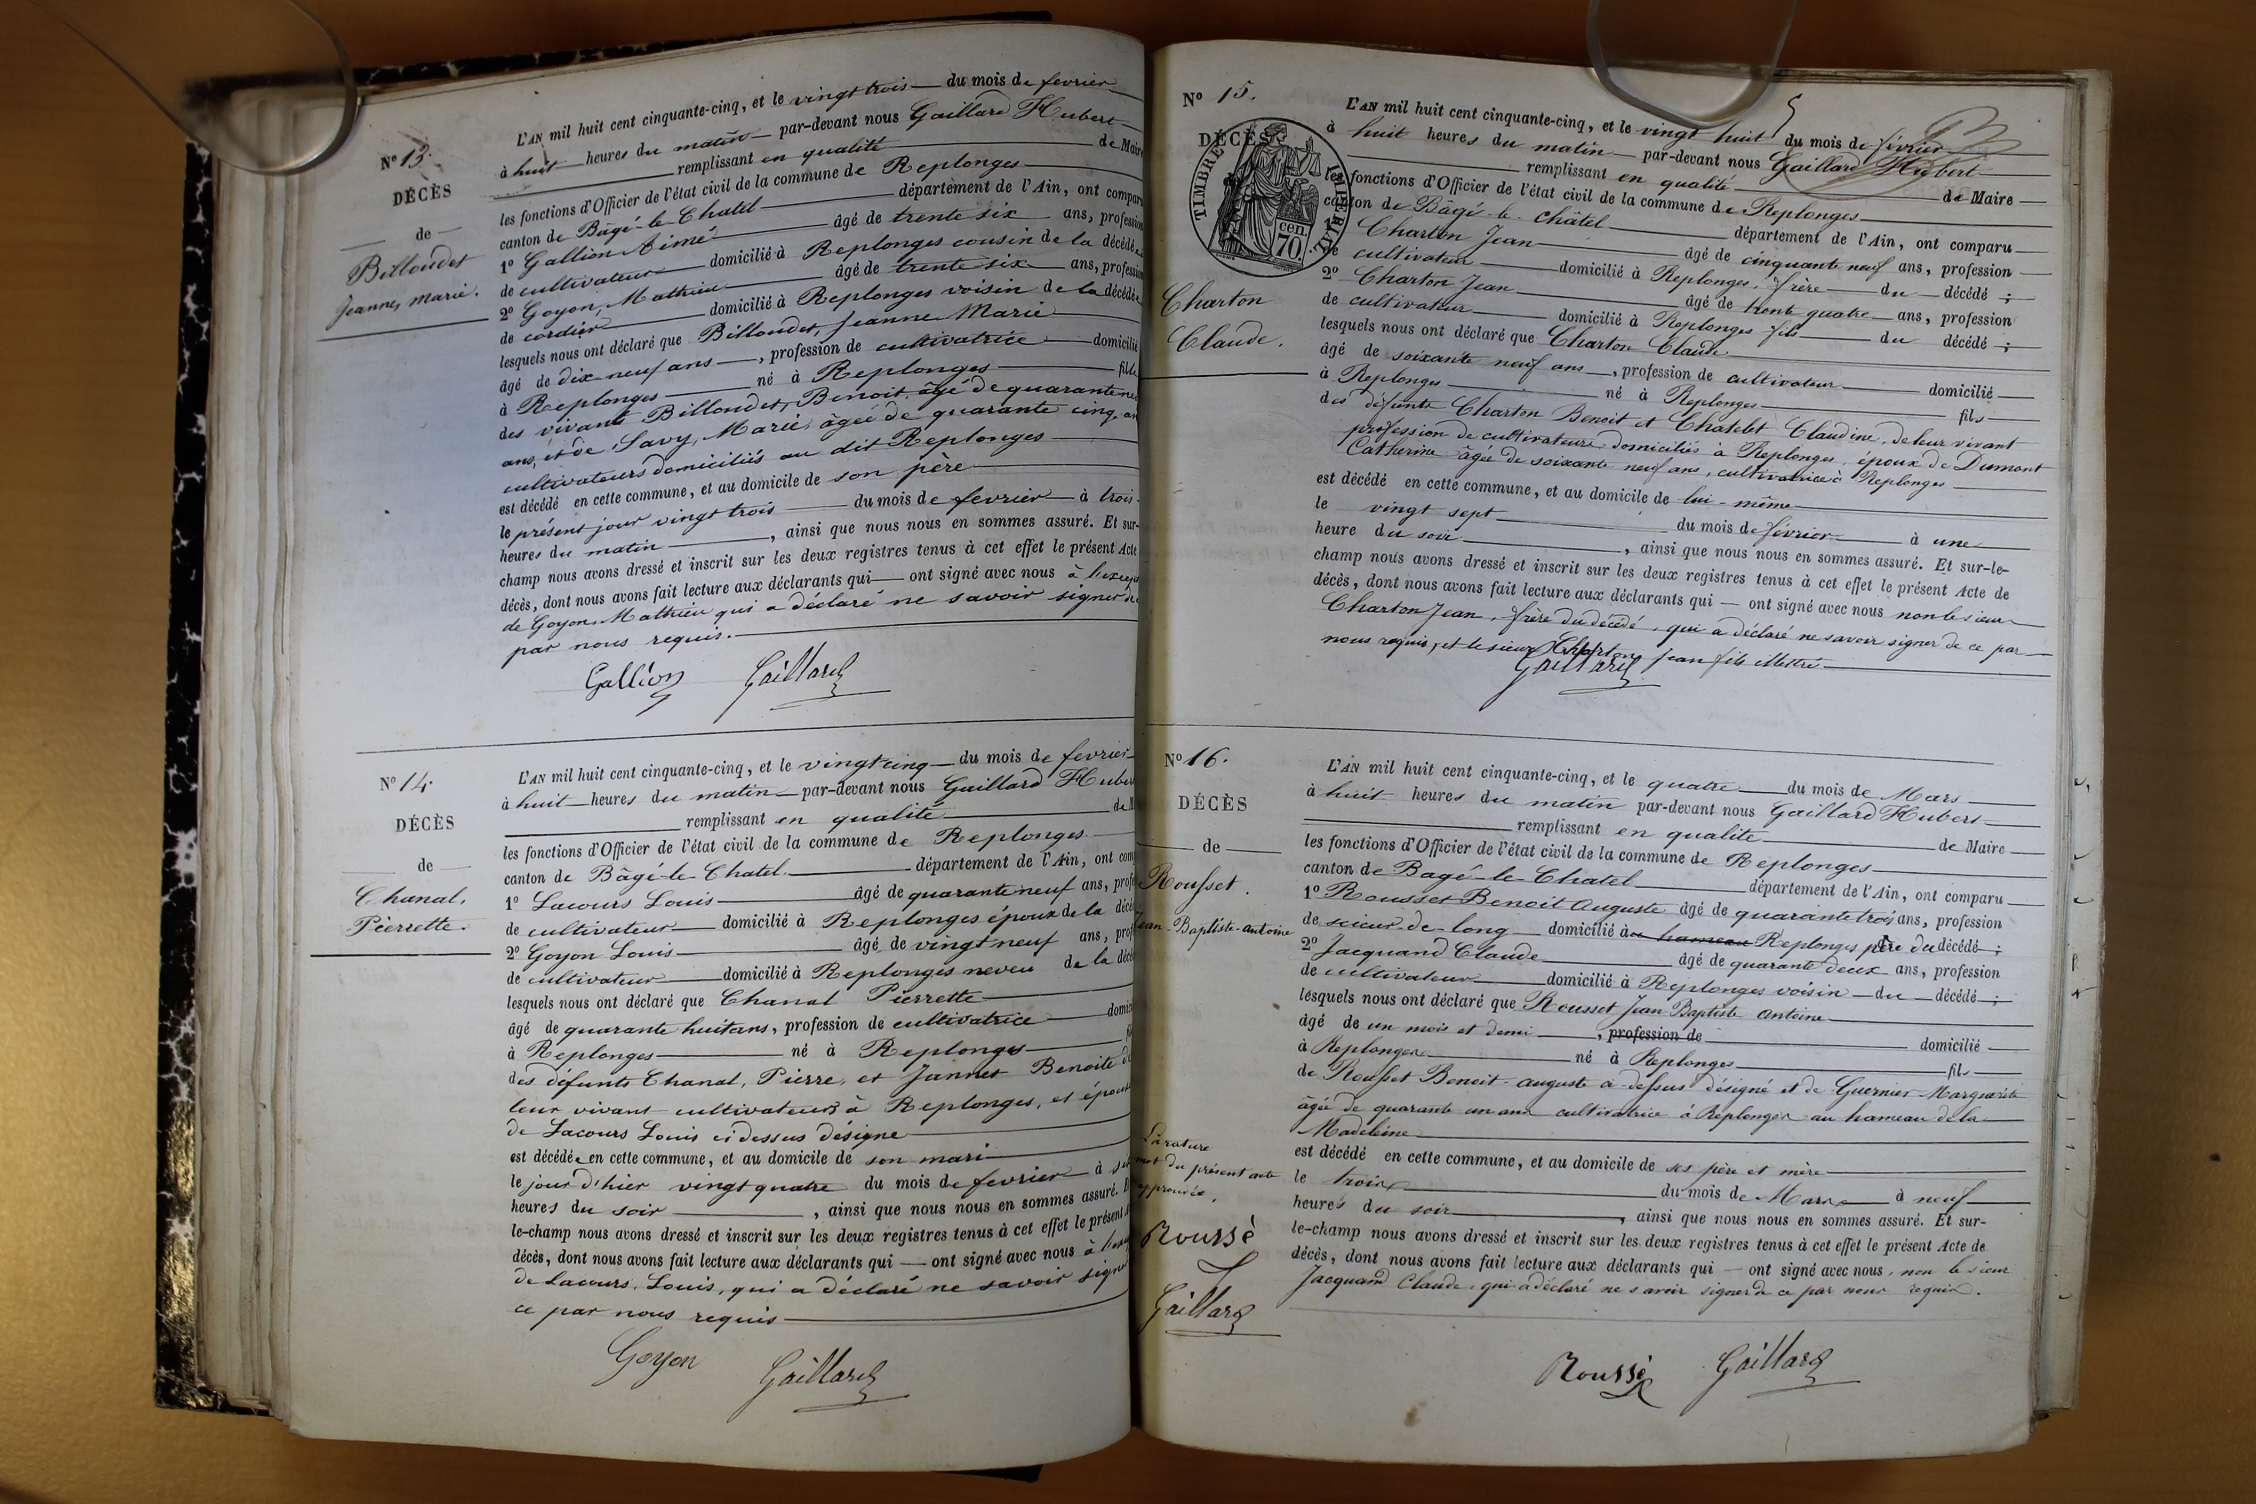 No 13.
DÉCÈS
de
Billoudet
Jeanne, marie.
L'AN mil huit cent cinquante-cinq, et le vingt trois du mois de fevrier
à huit heures du matin par-devant nous Gaillard Hubert
remplissant en qualité de Maire
les fonctions d'Officier de l'état civil de la commune de Replonges
canton de Bâgé-le-Chatel département de l'Ain, ont compar
1o Gallion Aimé âgé de trente six ans, profession
de cultivateur domicilié à Replonges cousin de la décédée
2o Goyon, Mathieu âgé de trente six ans, profession
de cordier domicilié à Replonges voisin de la décédée
lesquels nous ont déclaré que Billoudet, Jeanne Marie
âgé de dix-neuf ans, profession de cultivatrice domicilié
à Replonges né à Replonges fille
des vivants Billoudet, Benoit, âgé de quarante neuf
ans, et de Savy, Marie, âgée de quarante cinq, an
cultivateurs domiciliés au dit Replonges
est décédé en cette commune, et au domicile de son père
le présent jour vingt trois du mois de fevrier à trois
heures du matin, ainsi que nous nous en sommes assuré. Et sur-
champ nous avons dressé et inscrit sur les deux registres tenus à cet effet le présent Acte
décès, dont nous avons fait lecture aux déclarants qui ont signé avec nous à l'except
de Goyon Mathieu qui a déclaré ne savoir signer de
par nous requis.
Gallion Gaillard
No 14.
DÉCÈS
de
Chanal,
Pierrette.
L'AN mil huit cent cinquante-cinq, et le vingt cinq du mois de fevrier
à huit heures du matin par-devant nous Gaillard Huber
remplissant en qualité de M
les fonctions d'Officier de l'état civil de la commune de Replonges
canton de Bâgé-le-Chatel département de l'Ain, ont com
1o Lacours Louis âgé de quarante neuf ans, profe
de cultivateur domicilié à Replonges époux de la décé
2o Goyon Louis âgé de vingt neuf ans, prof
de cultivateur domicilié à Replonges neveu de la décé
lesquels nous ont déclaré que Chanal Pierrette
âgé de quarante huit ans, profession de cultivatrice domic
à Replonges né à Replonges fi
des défunts Chanal, Pierre, et Jannet Benoite de
leur vivant cultivateurs à Replonges, et épouse
de Lacours Louis ci dessus désigné
est décédée en cette commune, et au domicile de son mari
le jour d'hier vingt quatre du mois de fevrier à
heures du soir, ainsi que nous nous en sommes assuré. E
le-champ nous avons dressé et inscrit sur les deux registres tenus à cet effet le présent A
décès, dont nous avons fait lecture aux déclarants qui ont signé avec nous à l'exce
de Lacours, Louis, qui a déclaré ne savoir signer
ce par nous requis
Goyon Gaillard
No 15.
DÉCÈS
TIMBRE IMPÉRIAL
cen. 70.
Charton
Claude.
5
L'AN mil huit cent cinquante-cinq, et le vingt huit du mois de février
à huit heures du matin par-devant nous Gaillard Hubert
remplissant en qualité de Maire
les fonctions d'Officier de l'état civil de la commune de Replonges
canton de Bâgé-le-châtel département de l'Ain, ont comparu
1o Charton Jean âgé de cinquante neuf ans, profession
de cultivateur domicilié à Replonges, frère du décédé ;
2o Charton Jean âgé de trente quatre ans, profession
de cultivateur domicilié à Replonges fils du décédé ;
lesquels nous ont déclaré que Charton Claude
âgé de soixante neuf ans, profession de cultivateur domicilié
à Replonges né à Replonges fils
des défunts Charton Benoit et Chatelet Claudine, de leur vivant
profession de cultivateurs domiciliés à Replonges, époux de Dumont
Catherine âgée de soixante neuf ans, cultivatrice à Replonges
est décédé en cette commune, et au domicile de lui-même
le vingt sept du mois de février à une
heure du soir, ainsi que nous nous en sommes assuré. Et sur-le-
champ nous avons dressé et inscrit sur les deux registres tenus à cet effet le présent Acte de
décès, dont nous avons fait lecture aux déclarants qui ont signé avec nous non le sieur
Charton Jean, frère du décédé, qui a déclaré ne savoir signer de ce par
nous requis, et le sieur Charton Jean fils illettré
Gaillard
No 16.
DÉCÈS
de
Rousset.
Jean-Baptiste-antoine
La rature
mot du présent acte
approuvée.
Roussè
Gaillard
L'AN mil huit cent cinquante-cinq, et le quatre du mois de Mars
à huit heures du matin par-devant nous Gaillard Hubert
remplissant en qualité de Maire
les fonctions d'Officier de l'état civil de la commune de Replonges
canton de Bagé-le-Chatel département de l'Ain, ont comparu
1o Rousset Benoit Auguste âgé de quarante trois ans, profession
de scieur de long domicilié à au hameau Replonges père du décédé ;
2o Jacquand Claude âgé de quarante deux ans, profession
de cultivateur domicilié à Replonges voisin du décédé ;
lesquels nous ont déclaré que Rousset Jean Baptiste antoine
âgé de un mois et demi, profession de domicilié
à Replonges né à Replonges fils
de Rousset Benoit-auguste ci-dessus désigné et de Guernier Marguerite
âgée de quarante un ans cultivatrice à Replonges au hameau de la
Madeleine
est décédé en cette commune, et au domicile de ses père et mère
le trois du mois de Mars à neuf
heures du soir, ainsi que nous nous en sommes assuré. Et sur-
le-champ nous avons dressé et inscrit sur les deux registres tenus à cet effet le présent Acte de
décès, dont nous avons fait lecture aux déclarants qui ont signé avec nous, non le sieur
Jacquand Claude, qui a déclaré ne savoir signer de ce par nous requis.
Roussè Gaillard